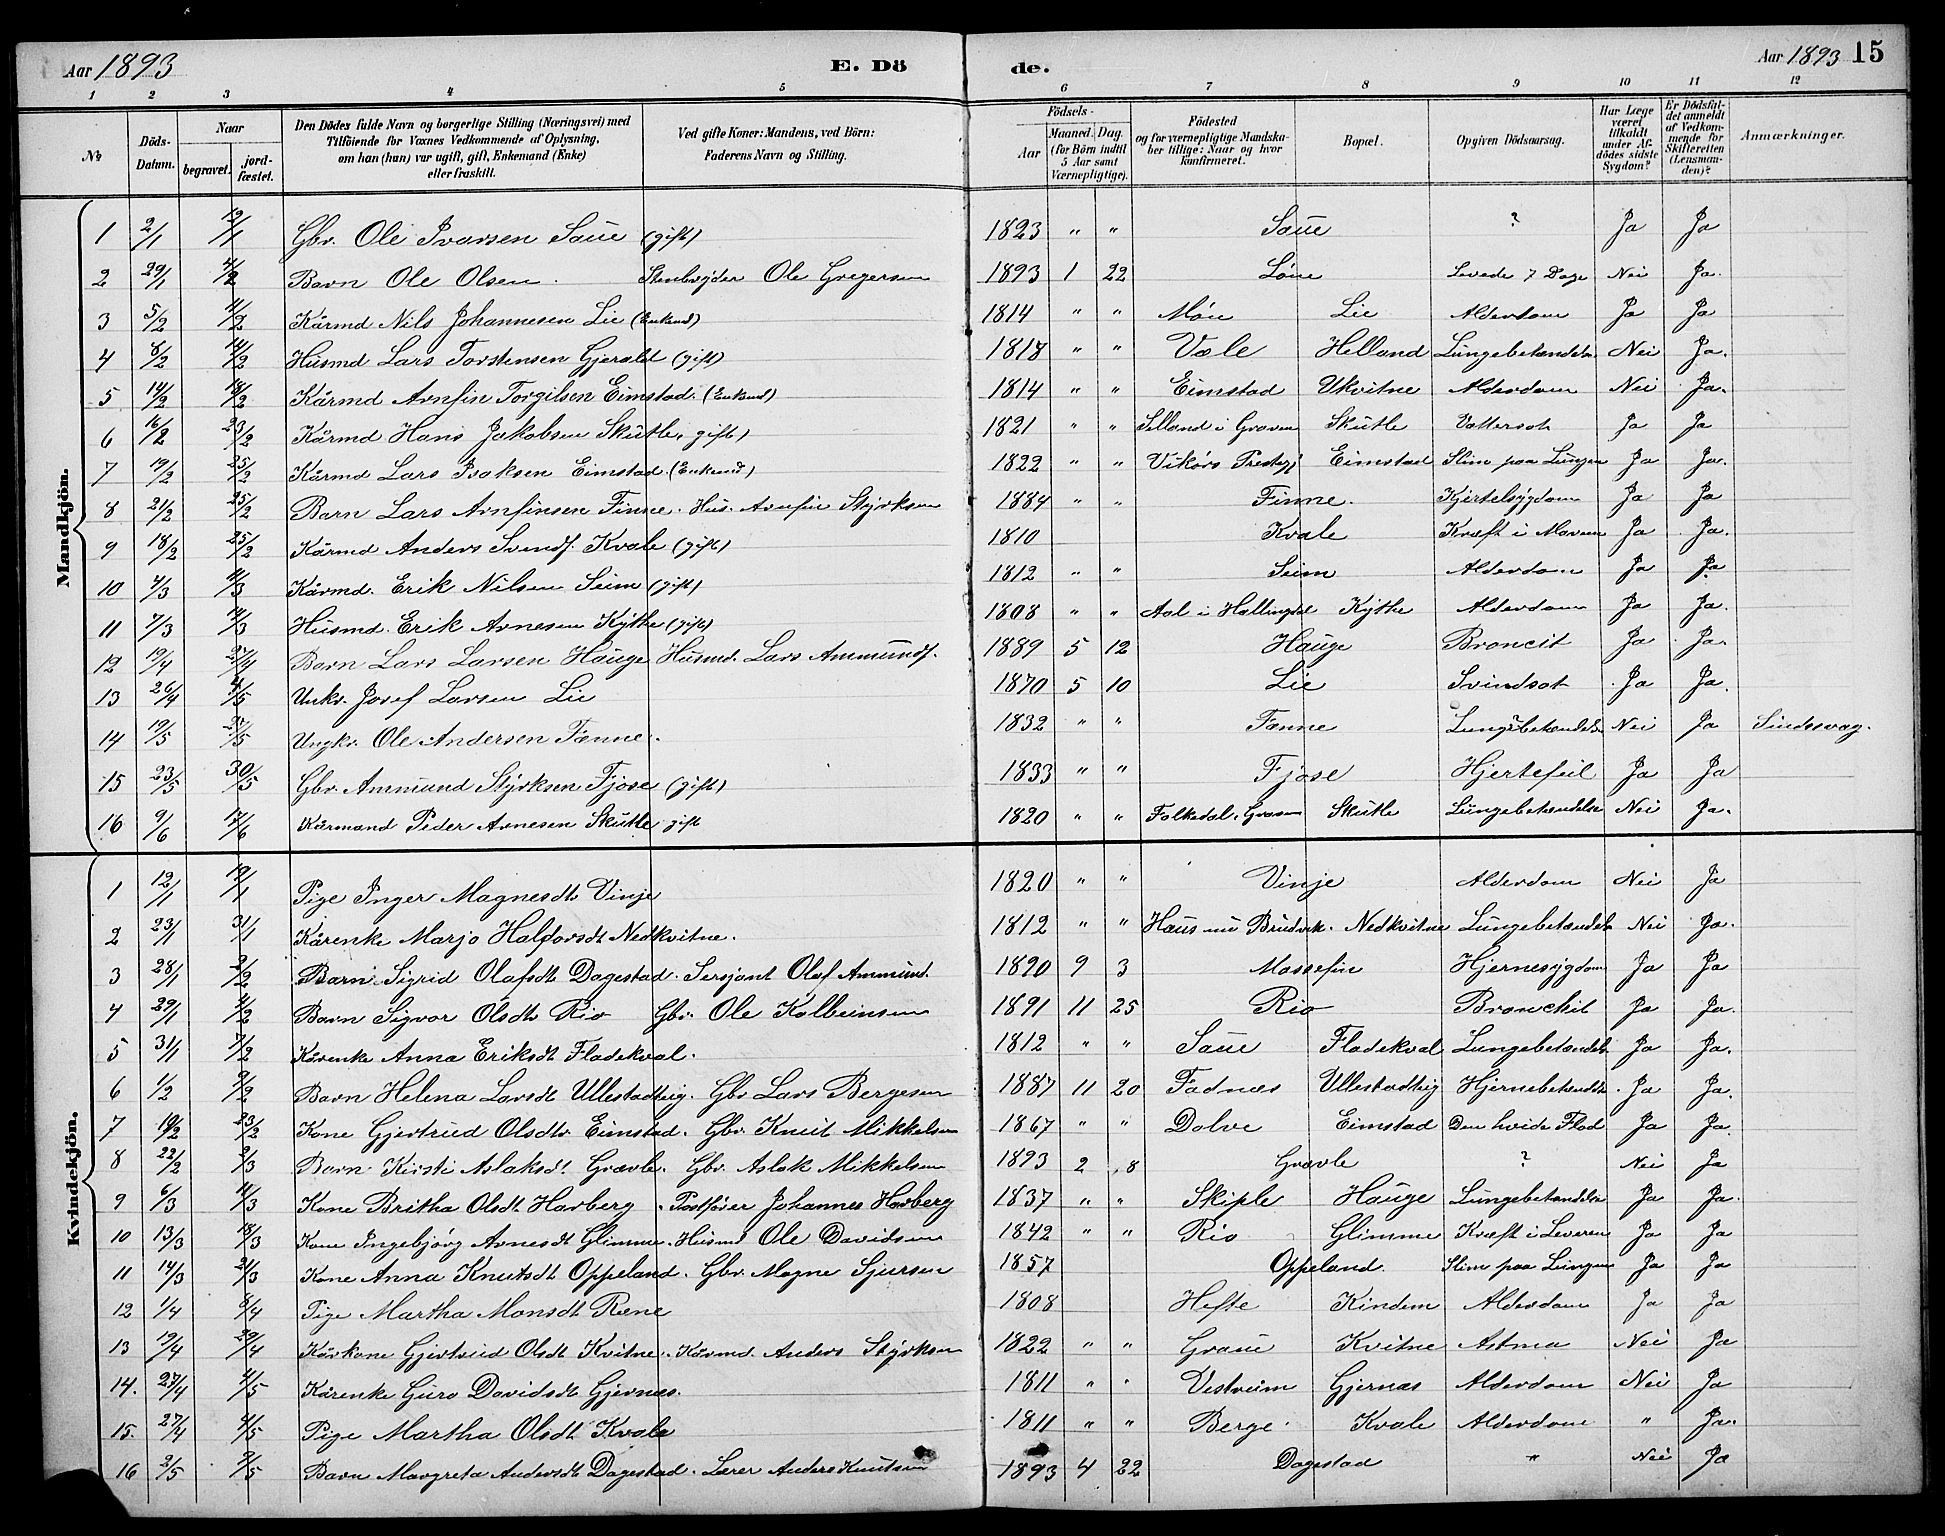 Aar 1893 E. Dö de. Aar 1893 15
1 2 3 4 5 6 7 8 9 10 11 12
№ Döds-Datum. Naar begravet. jord-fæstet. Den Dödes fulde Navn og borgerlige Stilling (Næringsvei) med Tilföiende for Voxnes Vedkommende af Oplysning, om han (hun) var ugift, gift, Enkemand (Enke) eller fraskilt. Ved gifte Koner: Mandens, ved Börn: Faderens Navn og Stilling. Födsels- Aar Maaned. Dag. (for Börn indtil 5 Aar samt Værnepligtige). Födested og for værnepligtige Mandskaber tillige: Naar og hvor konfirmeret. Bopæl. Opgiven Dödsaarsag. Har Læge været tilkaldt under Afdödes sidste Sygdom? Er Dödsfaldet anmeldt af Vedkommende for Skifteretten (Lensmanden)? Anmærkninger.
Mandkjön.
1 2/1 12/1 Gbr. Ole Ivarsen Saue (gift) 1823 " " Saue ? Ja Ja
2 29/1 4/2 Barn Ole Olsen. Stenbryder Ole Gregersen 1893 1 22 Løne Levede 7 Dage Nei Ja.
3 5/2 11/2 Kårmd Nils Johannesen Lie (Enkmd) 1814 " " Møn Lie Alderdom Ja Ja
4 8/2 14/2 Husmd Lars Torstensen Gjerald (gift) 1818 " " Væle Helland Lungebetændelse Nei Ja.
5 14/2 18/2 Kårmd Arnfin Torgilsen Eimstad. (Enkmd) 1814 " " Eimstad Ukvitne Alderdom Nei Ja.
6 16/2 23/2 Kårmd Hans Jakobsen Skutle. gift) 1821 " " Selland i Graven Skutle Vattersot Ja Ja
7 19/2 25/2 Kårmd Lars Isaksen Eimstad (Enkemd) 1822 " " Vikørs Prestegj Eimstad Slim paa Lungen Ja Ja.
8 21/2 25/2 Barn Lars Arnfinsen Finne. Hus. Arnfin Styrksen 1884 " " Finne. Kjertelsygdom Ja Ja
9 18/2 25/2 Kårmd Anders Svends. Kvale (gift) 1810 Kvale Kræft i Maven Ja Ja.
10 4/3 11/3 Kårmd. Erik Nilsen Seim (gift) 1812 " " Seim Alderdom Ja Ja
11 7/3 14/3 Husmd. Erik Arnesen Kythe (gift) 1808 " " Aal i Hallingdal Kythe Alderdom Ja Ja.
12 19/4 27/4 Barn Lars Larsen Hauge Husmd. Lars Ammunds. 1889 5 12 Hauge Broncit Ja Ja.
13 26/4 4/5 Unkr. Josef Larsen Lie 1870 5 10 Lie Svindsot Ja Ja.
14 19/5 27/5 Ungkr. Ole Andersen Tanne. 1832 " " Tanne Lungebetændelse Nei Ja Sindssvag.
15 23/5 30/5 Gbr. Ammund Styrksen Fjose (gift) 1833 " " Fjose Hjertefeil Ja Ja
16 9/6 17/6 Kårmand Peder Arnesen Skutle gift 1820 " " Folkedal i Graven Skutle Lungebetændelse Nei Ja.
Kvindekjön.
1 12/1 19/1 Pige Inger Magnesdt. Vinje 1820 " " Vinje Alderdom Nei Ja
2 23/1 31/1 Kårenke Marjo Halfarsdt Nedkvitne. 1812 " " Haus nu Brudvik. Nedkvitne Lungebetændelse Nei Ja.
3 28/1 2/2 Barn Sigrid Olafsdt Dagestad. Sersjant Olaf Ammund. 1890 9 3 Massefin Hjernesygdom Ja Ja
4 29/1 4/2 Barn Sigvor Olsdt. Rio Gbr. Ole Kolbeinsen 1891 11 25 Rio Bronchit Ja Ja.
5 31/1 7/2 Kårenke Anna Eriksdt Fladekval. 1812 " " Saue Fladekval Lungebetændelse Ja Ja.
6 1/2 9/2 Barn Helena Larsdt Ullestadteig. Gbr Lars Bergesen 1887 11 20 Fadnæs Ullestadteig Hjernebetændelse Ja Ja.
7 19/2 23/2 Kone Gjertrud Olsdtr Eimstad. Gbr. Knut Mikkelsen 1867 " " Dolve Eimstad Den hvide Flod Ja Ja.
8 22/2 2/3 Barn Kirsti Aslaksdt. Grævle. Gbr. Aslak Mikkelsen 1893 2 8 Grævle ? Nei Ja
9 6/3 11/3 Kone Britha Olsdt Harberg. Postfører Johannes Harberg 1837 " " Skiple Hauge Lungebetændelse Ja Ja.
10 13/3 18/3 Kone Ingebjørg Arnesdt Glimme. Husmd Ole Davidsen 1842 " " Rio Glimme Kræft i Leveren Ja Ja
11 14/3 21/3 Kone Anna Knutsdt Oppeland. Gbr. Magne Sjursen 1857 Oppeland. Slim paa Lungen Ja Ja
12 1/4 8/4 Pige Martha Monsdt Rene 1808 Hefte Kindem Alderdom Ja Ja
13 19/4 29/4 Kårkone Gjertrud Olsdt Kvitne. Kårmd. Anders Styrksen 1822 " " Graue Kvitne Astma Nei Ja
14. 27/4 4/5 Kårenke Guro Davidsdt Gjernæs. 1811 " " Vestreim Gjernæs Alderdom Nei Ja
15. 27/4 4/5 Pige Martha Olsdt Kvale 1811 " " Berge Kvale Alderdom " Ja.
16 2/5 9/5 Barn Margreta Andersdt Dagestad. Lærer Anders Knutsen 1893 4 22 Dagestad " Nei Ja